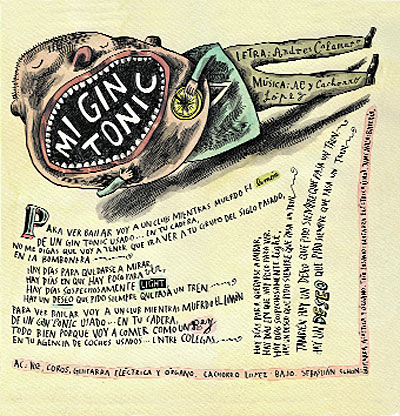 MI GIN
TONIC
LETRA: Andres Calamaro
MÚSICA: AC y Cachorro
López
PARA VER BAILAR VOY A UN CLUB MIENTRAS MUERDO EL limón
DE UN GIN TONIC USADO... EN TU CADERA,
NO ME DIGAS QUE VOY A TENER QUE IRA VER A TU GRUPO DEL SIGLO PASADO
EN LA BOMBONERA
HAY DÍAS PARA QUEDARSE A MIRAR,
HAY DÍAS EN QUE HAY POCO PARA VER,
HAY DÍAS SOSPECHOSAMENTE LIGHT,
HAY UN DESEO QUE PIDO SIEMPRE QUE PASA UN TREN
PARA VER BAILAR VOY A UN CLUB MIENTRAS MUERDO EL LIMÓN
DE UN GIN TONIC USADO... EN TU CADERA,
TODO BIEN PORQUE VOY A COMER COMO UN REY
EN TU AGENCIA DE COCHES USADOS... ENTRE COLEGAS,
HAY DÍAS PARA QUEDARSE A MIRAR,
HAY DÍAS EN QUE HAY POCO PARA VER,
HAY DÍAS SOSPECHOSAMENTE LIGHT,
HAY UN DESEO QUE PIDO SIEMPRE QUE PASA UN TREN
TAMBIÉN HAY UN DESEO QUE PIDO SIEMPRE QUE PASA UN TREN,
HAY UN DESEO QUE PIDO SIEMPRE QUE PASA UN TREN
AC: VOZ, COROS, GUITARRA ELÉCTRICA Y ÓRGANO, CACHORRO LOPEZ: BAJO, SEBASTIÁN SCHON:
GUITARRA ACÚSTICA Y ÓRGANO,